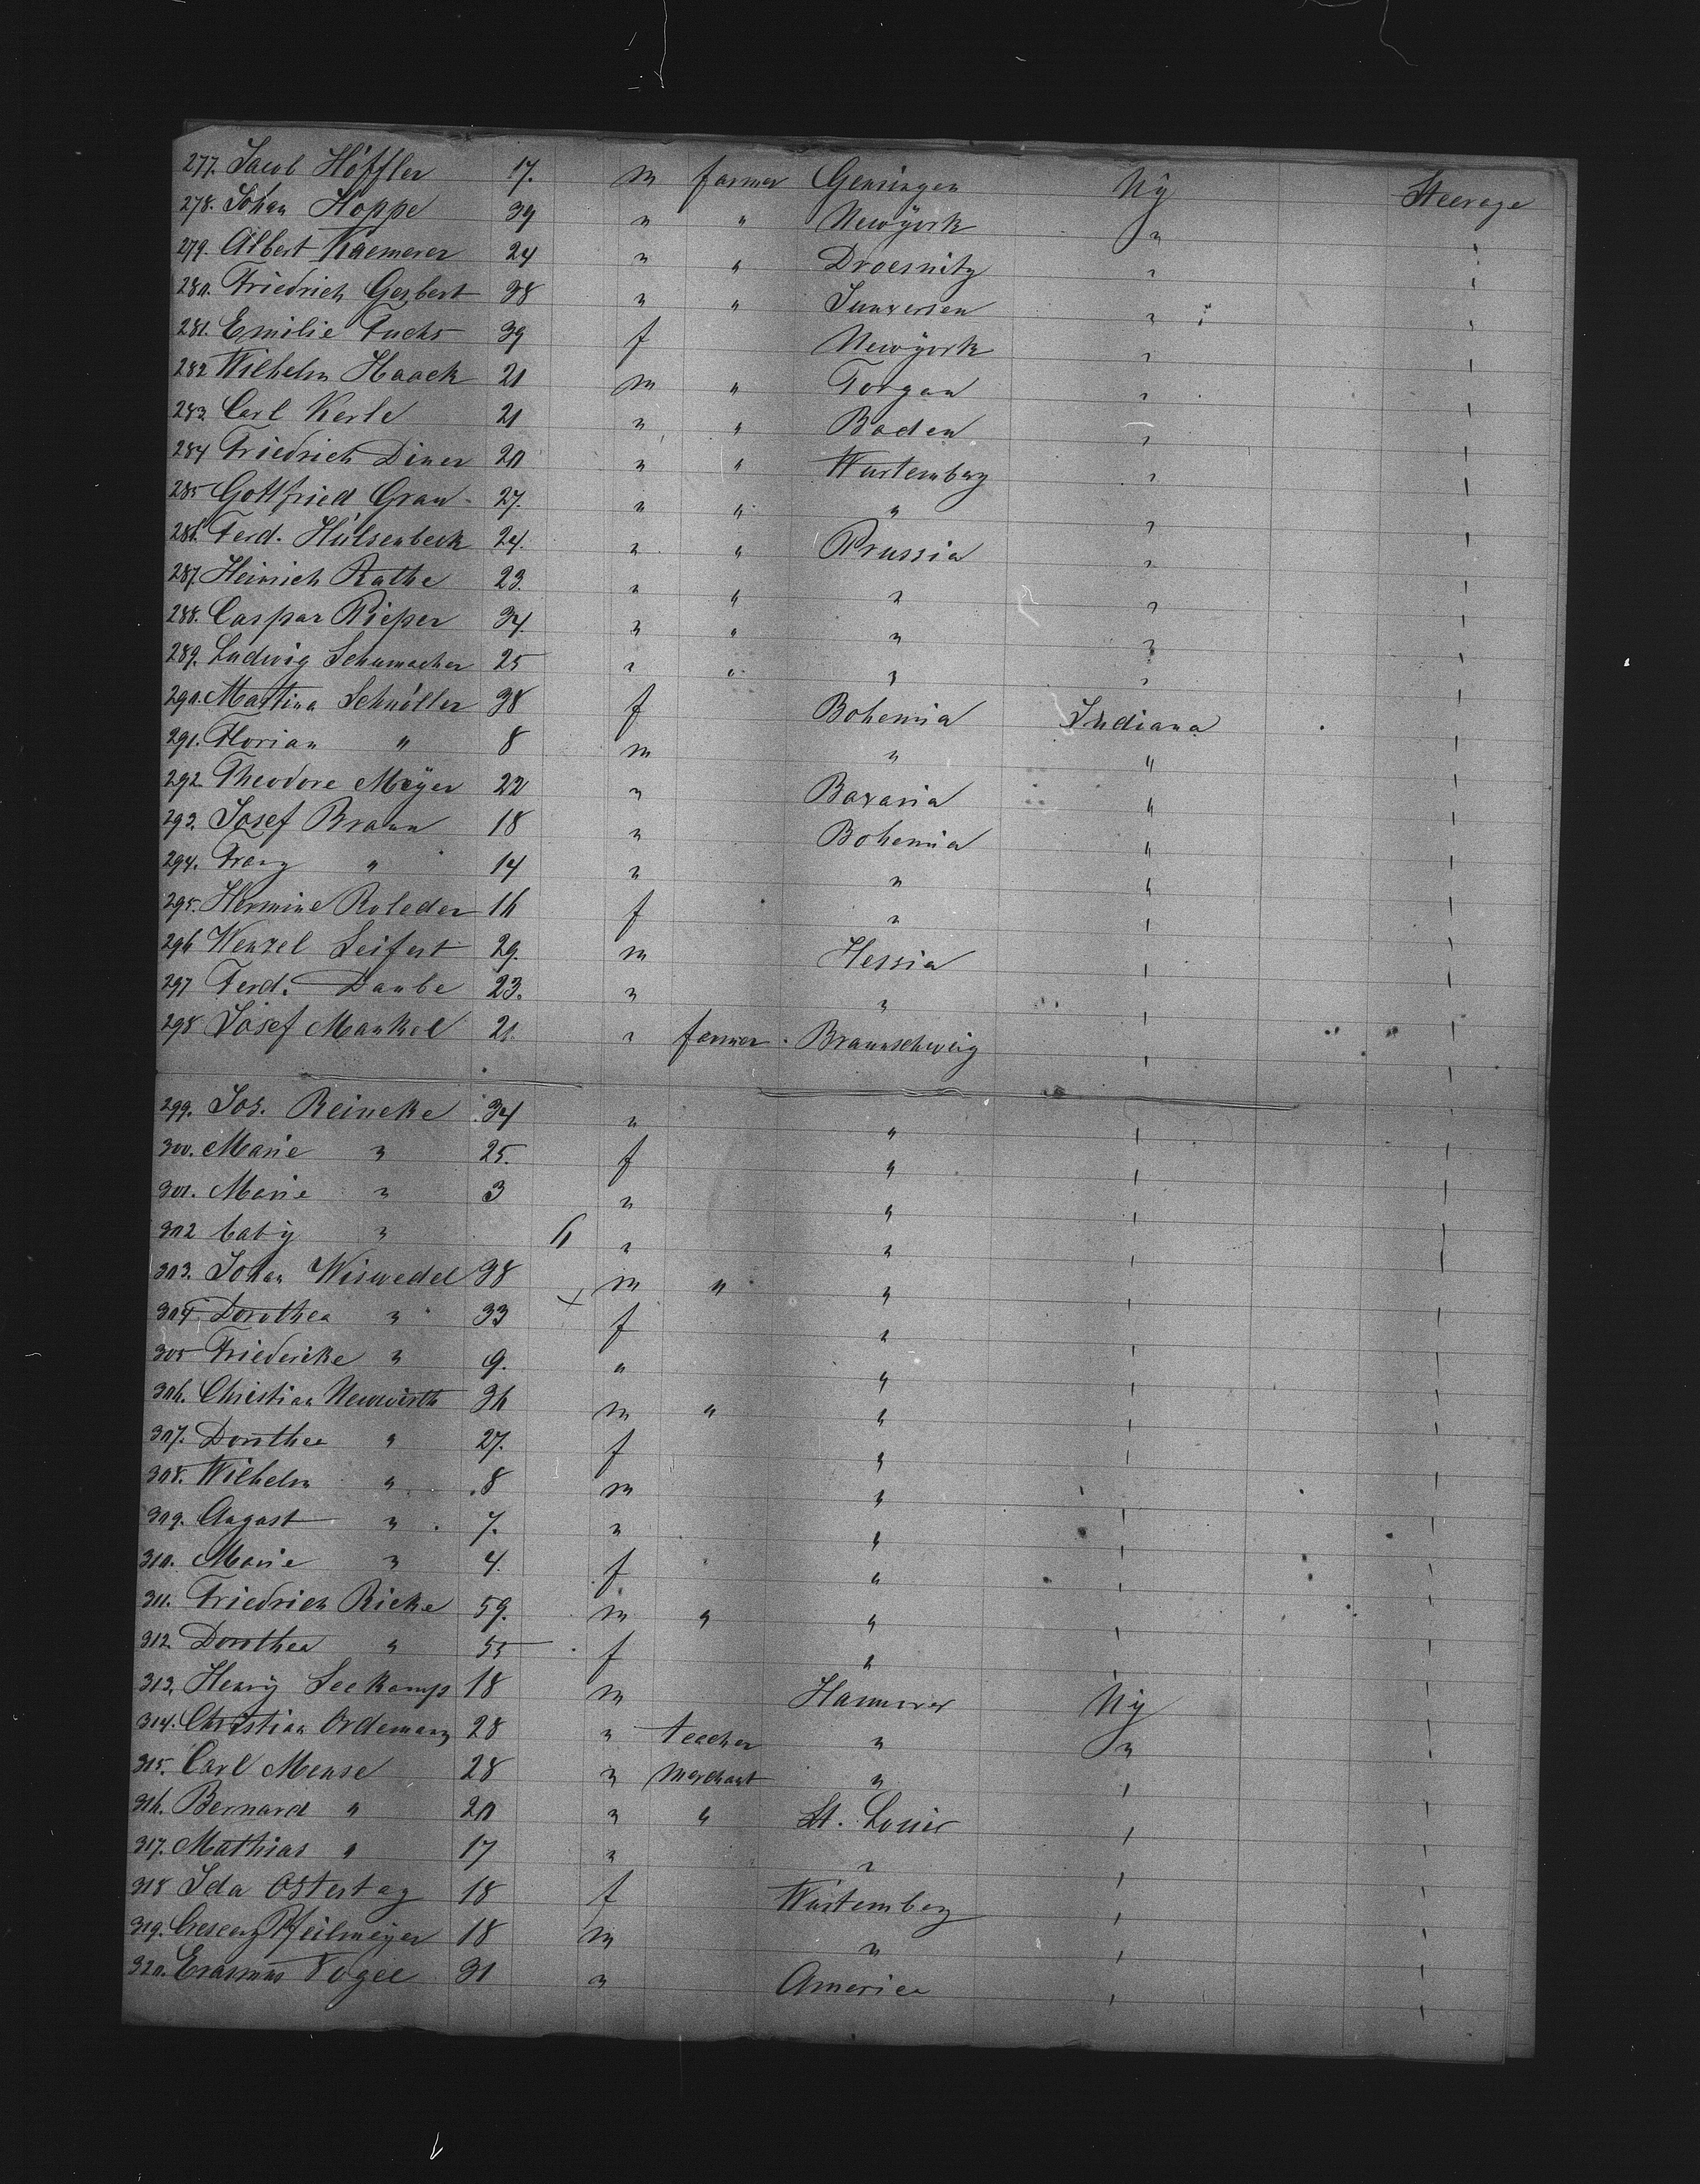 277. Jacob Höffler 17. m farmer Gensingen NY Steerage
278. Johan Hoppe 39 " " Newÿork " "
279. Albert Kaemerer 24 " " Droesnitz " "
280. Friedrich Gerbert 38 " " " "
281. Emilie Fuchs 39 f Newÿork " "
282 Wilhelm Haack 21 m " Torgau " "
283. Carl Kerle 21 " " Baden " "
284 Friedrich Diner 20 " " Wurtemberg " "
285 Gottfried Grau 27. " " " " "
286. Ferd. Hülsenbeck 24. " " Prussia " "
287. Heinrich Rathe 23. " " " " "
288. Caspar Pieper 34. " " " " "
289. Ludwig Schumacher 25 " " " " "
290. Martina Schnöller 38 f Bohemia Indiana "
291. Florian " 8 m " " "
292. Theodore Meÿer 22 " Bavaria " "
293. Josef Braun 18 " Bohemia " "
294. Franz " 14 " " " "
295. Hermine Roleder 16 f " " "
296 Wenzel Seifert 29. m Hessia " "
297 Ferd. Daube 23. " " " "
298 Josef Mankel 21. " farmer Braunschweig " "
299. Jos. Reineke 34 " " " "
300. Marie " 25. f " " "
301. Marie " 3 " " " "
302 baby " 6 " " " "
303. Johan Wiswedel 38 m " " " "
304 Dorothea " 33 x f " " "
305 Friedericke " 9. " " " "
306. Christian Neuwirth 36 m " " " "
307. Dorothea " 27. f " " "
308. Wilhelm " 8 m " " "
309. August " 7. " " " "
310. Marie " 4. f " " "
311. Friedrich Ricke 59. m " " " "
312. Dorothea " 55 f " " "
313. Henrÿ Seekamp 18 m Hannover NY "
314. Christian Ordemann 28 " teacher " " "
315. Carl Mense 28 " Merchant " " "
316. Bernard " 20 " " St. Louis " "
317. Mathias " 17 " " " "
318 Ida Ostertag 18 f Würtemberg " "
319. Crescenz Pfeilmeÿer 18 m " " "
320. Erasmus Vogel 31 " America " "